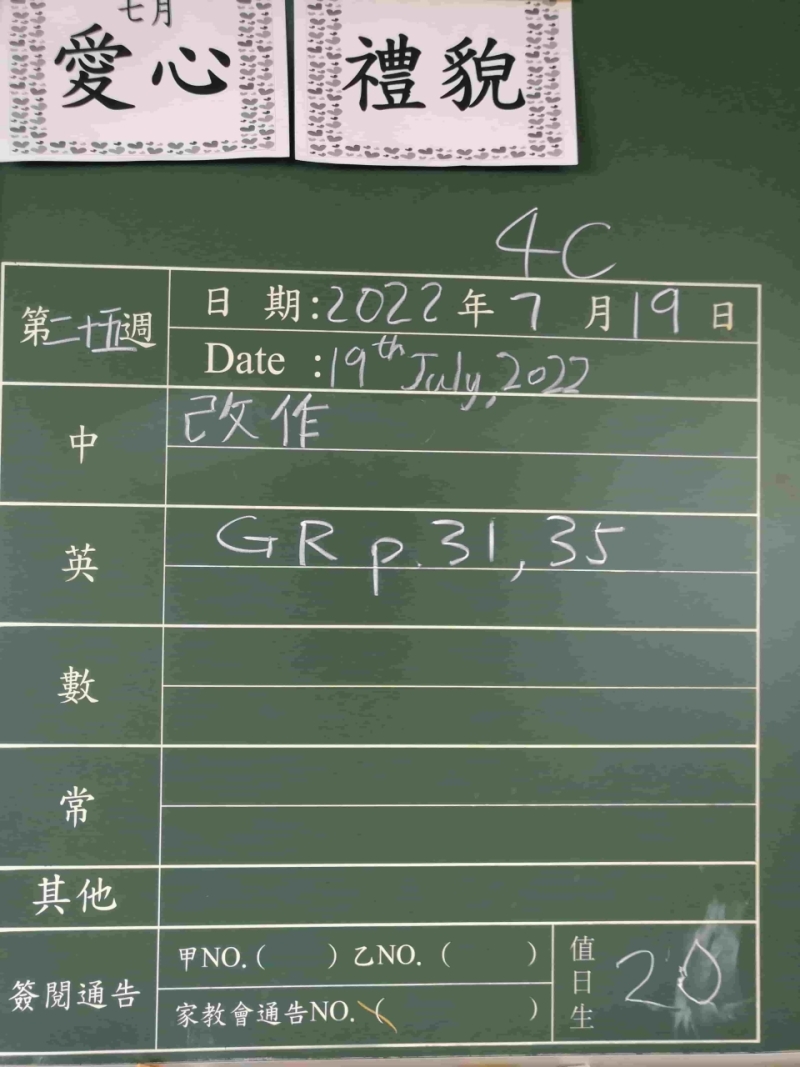 七月
愛心
禮貌
4C
第二十五週
日 期:2022年7月19日
Date :19th July, 2022
中
改作
英
GR p.31, 35
數
常
其他
簽閱通告
甲NO.( )乙NO.( )
家教會通告NO.( )
值日生
20